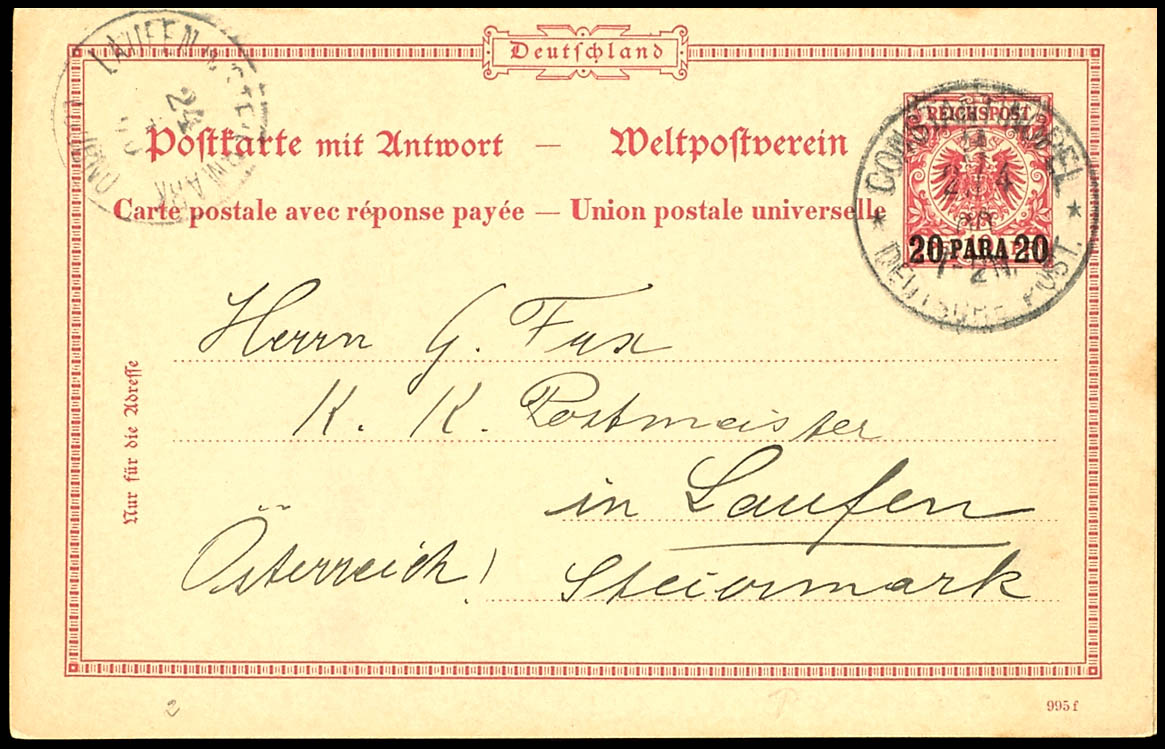 Deutschland
Postkarte mit Antwort — Weltpostverein
Carte postale avec réponse payée — Union postale universelle
REICHSPOST
20 PARA 20
CONSTANTINOPEL
24
DEUTSCHE POST.
LAUFEN
24
Herrn G. Fux
K. K. Postmeister
in Laufen
Österreich! Steiermark
Nur für die Adresse
995 f